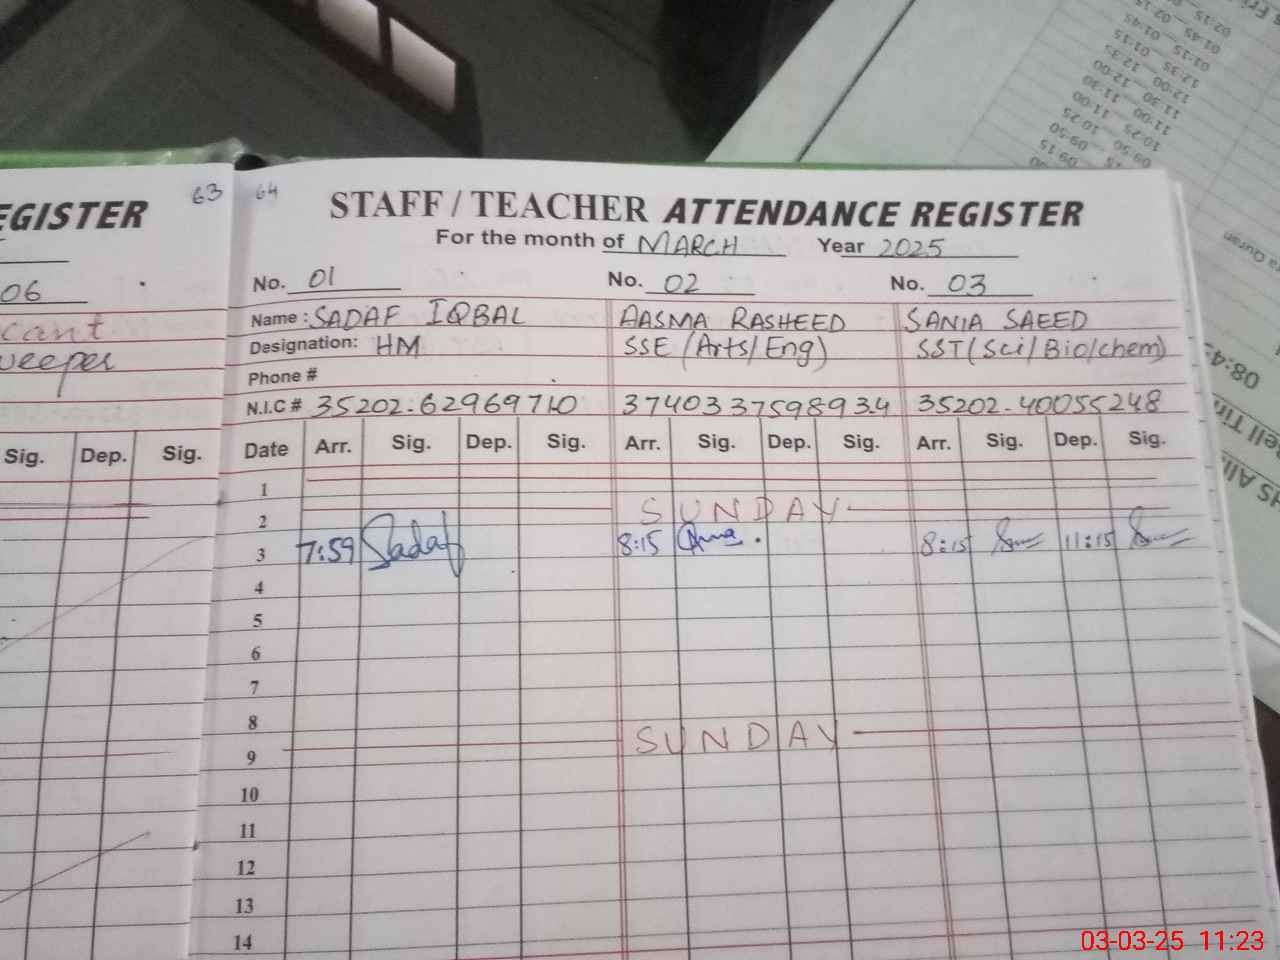 EGISTER
63
06
cant
weeper
Sig. Dep. Sig.
64
STAFF / TEACHER ATTENDANCE REGISTER
For the month of MARCH Year 2025
No. 01 No. 02 No. 03
Name : SADAF IQBAL AASMA RASHEED SANIA SAEED
Designation: HM SSE (Arts/Eng) SST (Sci/Bio/chem)
Phone #
N.I.C # 35202-62969710 3740337598934 35202-40055248
Date Arr. Sig. Dep. Sig. Arr. Sig. Dep. Sig. Arr. Sig. Dep. Sig.
1
2 SUNDAY
3 7:59 Sadaf 8:15 8:15 11:15
4
5
6
7
8
9 SUNDAY
10
11
12
13
14
02:15
01:45 02:15
01:15 01:45
12:35 01:15
12:00 12:35
11:30 12:00
11:00 11:30
10:25 11:00
09:50 10:25
09:15 09:50
09:15
Quran
08:45
Bell Tim
03-03-25 11:23